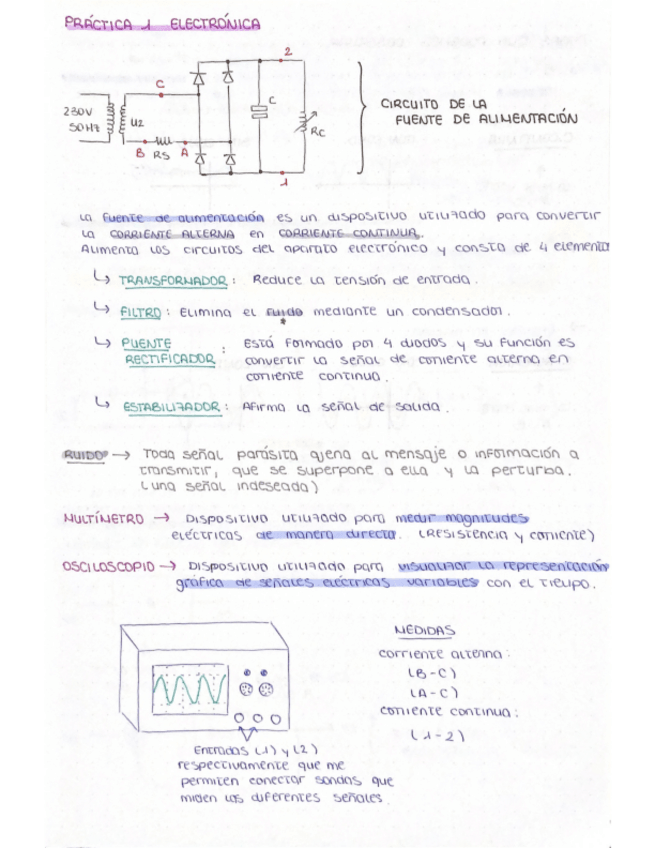 PRÁCTICA 1 ELECTRÓNICA
2
C
C
230V
50Hz
U2
RC
B RS A
1
CIRCUITO DE LA
FUENTE DE ALIMENTACIÓN
La fuente de alimentación es un dispositivo utilizado para convertir
la CORRIENTE ALTERNA en CORRIENTE CONTINUA.
Alimenta los circuitos del aparato electrónico y consta de 4 elementos
↳ TRANSFORMADOR: Reduce la tensión de entrada.
↳ FILTRO: Elimina el ruido mediante un condensador.
*
↳ PUENTE RECTIFICADOR: Está formado por 4 diodos y su función es
convertir la señal de corriente alterna en
corriente continua.
↳ ESTABILIZADOR: Afirma la señal de salida.
RUIDO* → Toda señal parásita ajena al mensaje o información a
transmitir, que se superpone a ella y la perturba.
(una señal indeseada)
MULTÍMETRO → Dispositivo utilizado para medir magnitudes
eléctricas de manera directa. (Resistencia y corriente)
OSCILOSCOPIO → Dispositivo utilizado para visualizar la representación
gráfica de señales eléctricas variables con el tiempo.
MEDIDAS
corriente alterna:
(B-C)
(A-C)
corriente continua:
(1-2)
Entradas (1) y (2)
respectivamente que me
permiten conectar sondas que
miden las diferentes señales.